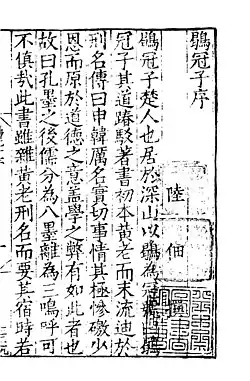 鶡冠子序
陸佃撰
鶡冠子楚人也居於深山以鶡為冠號曰鶡
冠子其道踳駮著書初本黃老而末流迪於
刑名傳曰申韓厲名實切事情其極慘礉少
恩而原於道德之意蓋學之弊有如此者也
故曰孔墨之後儒分為八墨離為三嗚呼可
不慎哉此書雖雜黃老刑名而要其宿時若